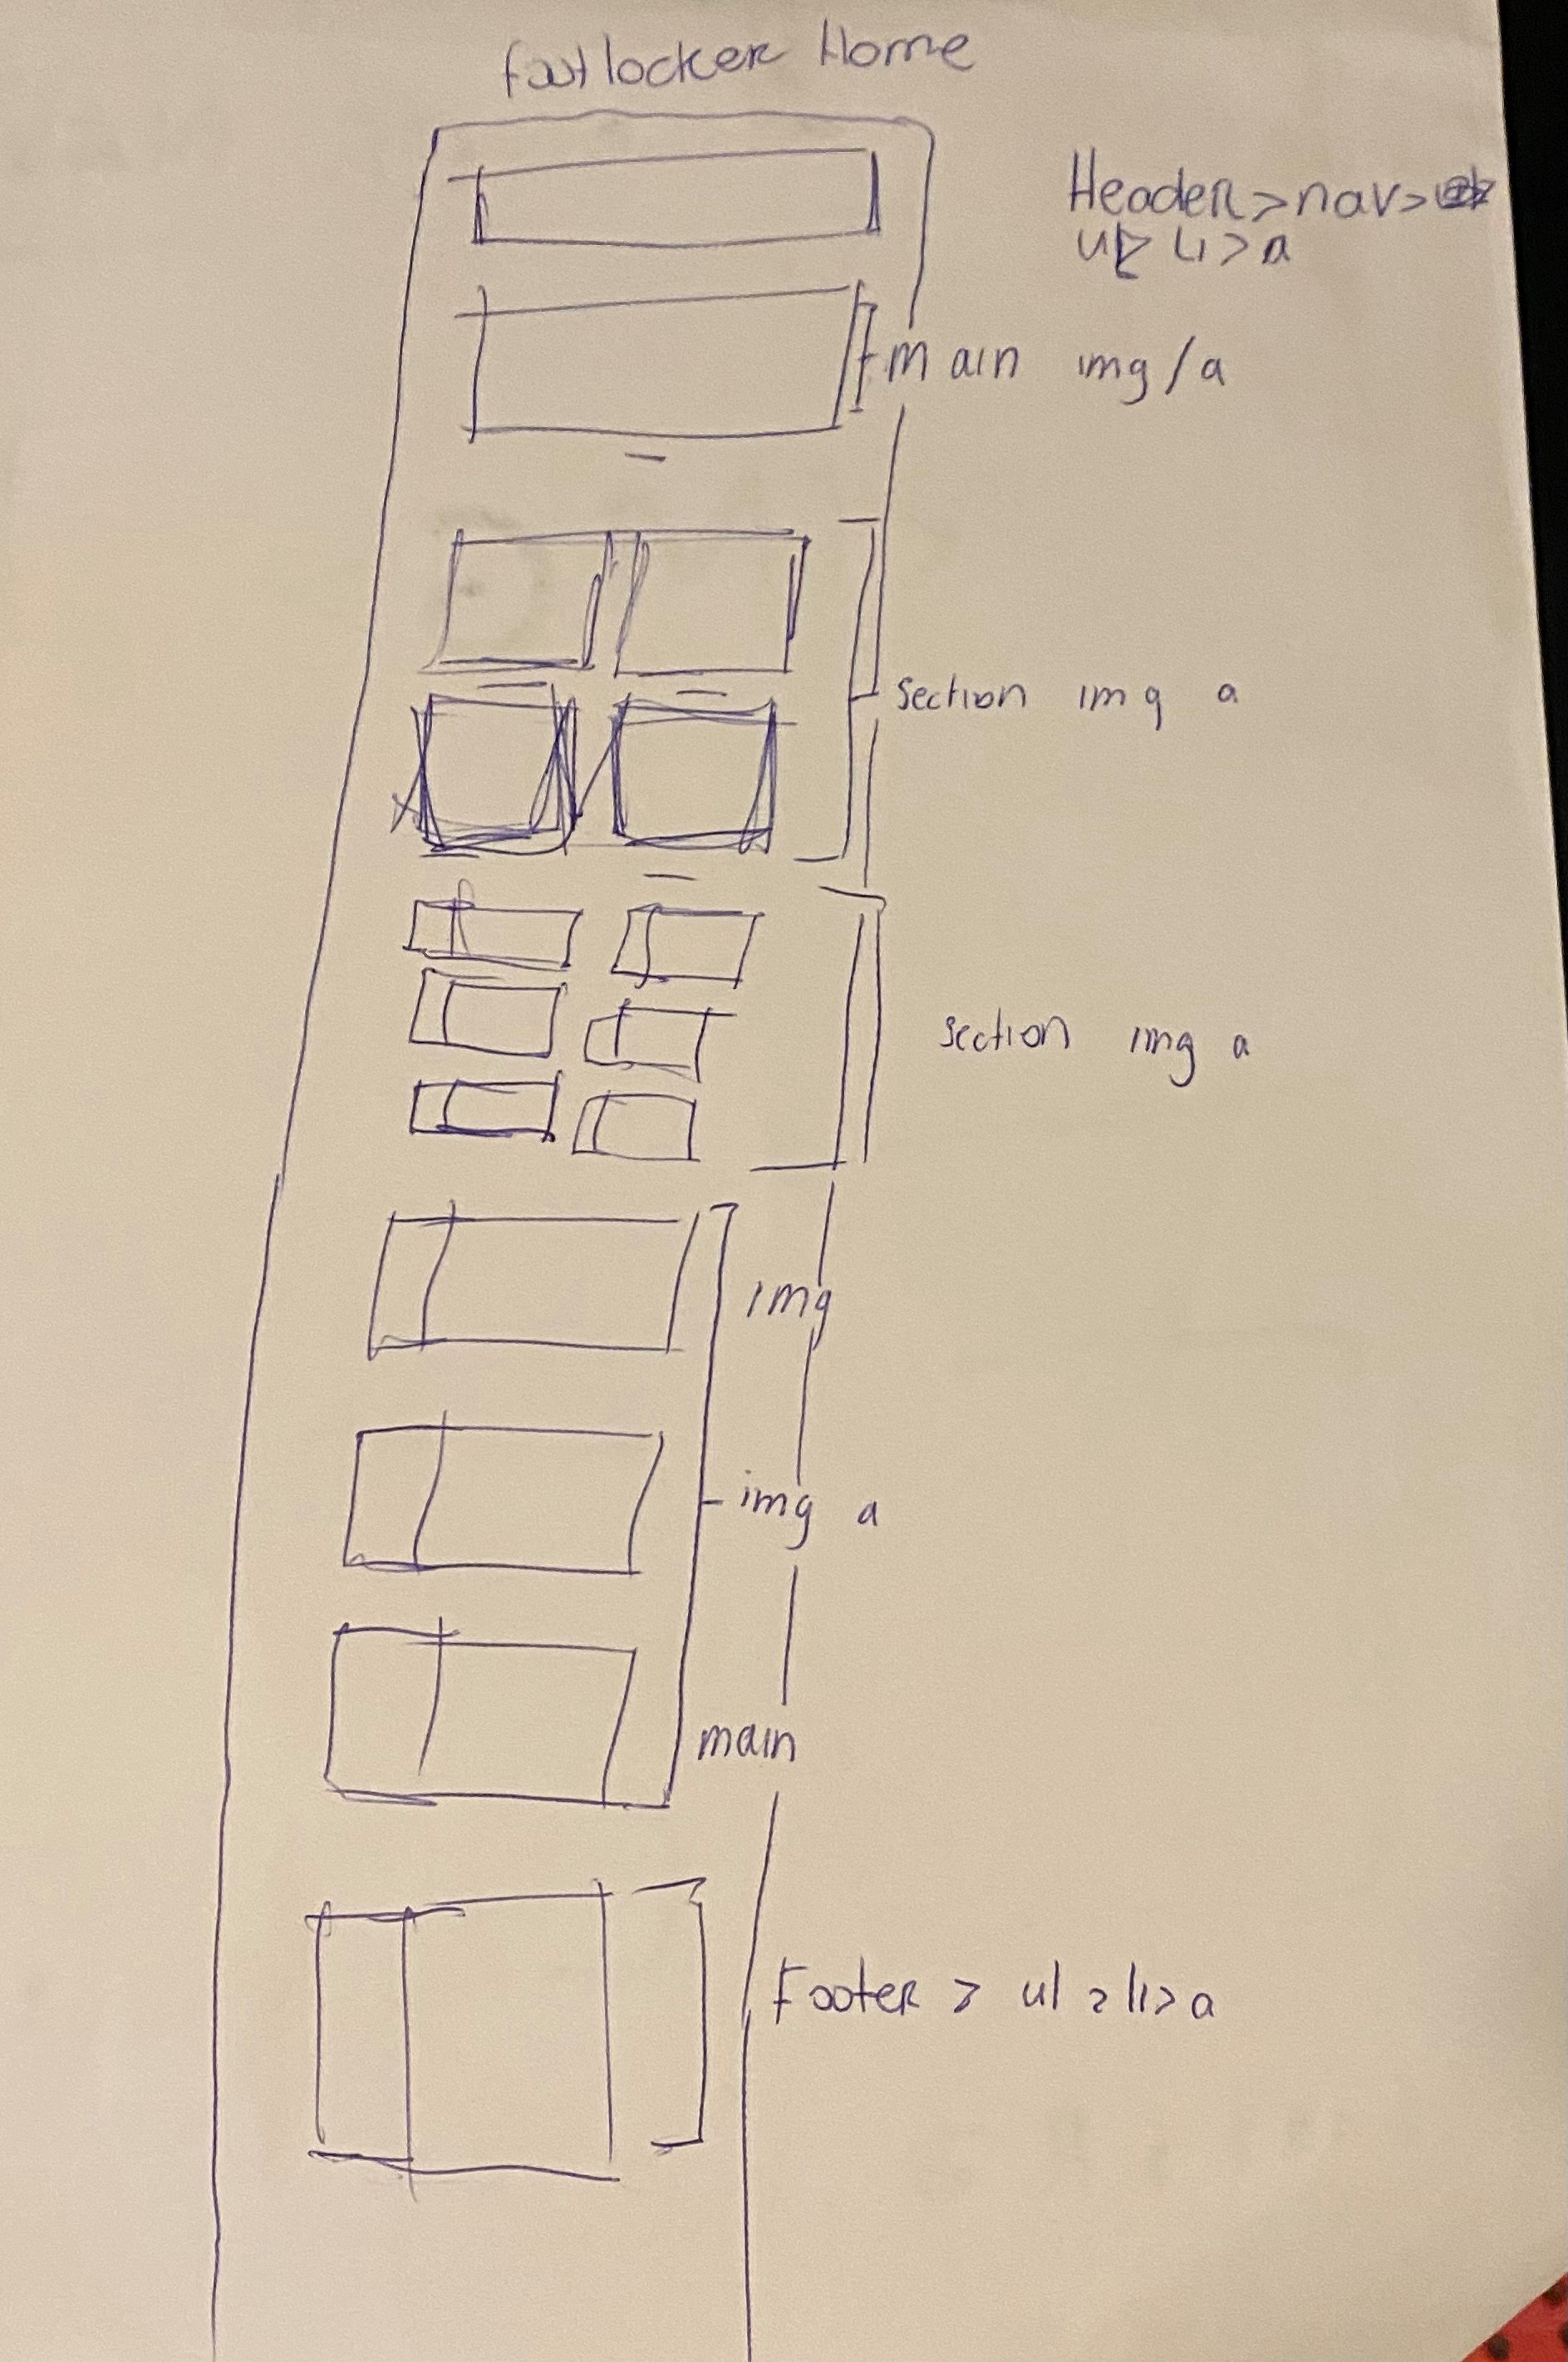 footlocker Home
Header > nav >
ul > Li > a
main img/a
section img a
section img a
img
img a
main
Footer > ul > li > a